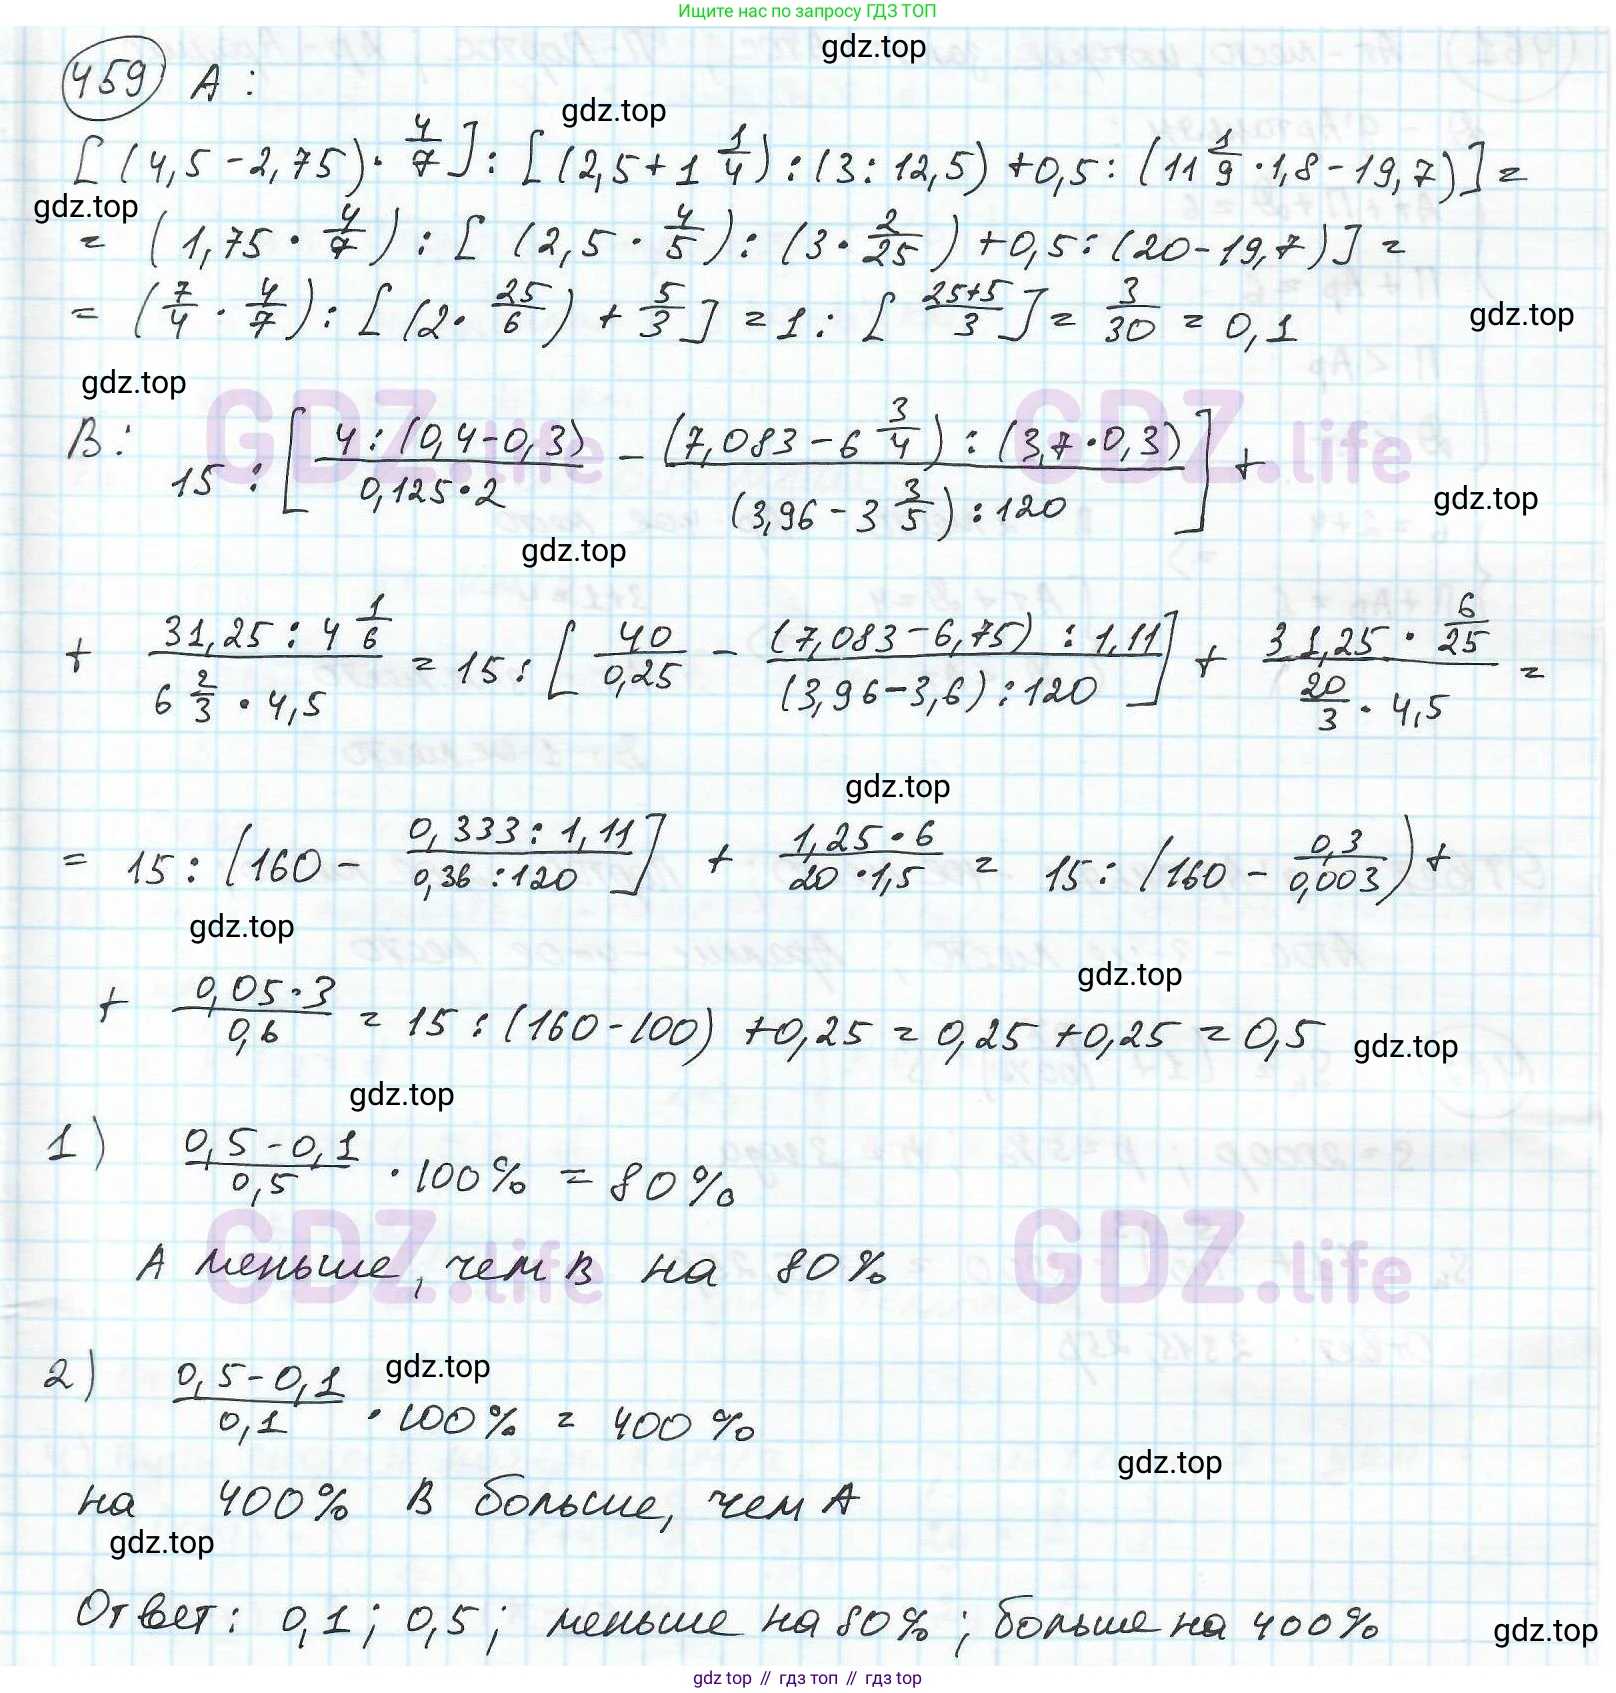 Ищите нас по запросу ГДЗ ТОП
gdz.top
459 A:
gdz.top
[(4,5 - 2,75) · 4/7] : [(2,5 + 1 1/4) : (3 : 12,5) + 0,5 : (11 1/9 · 1,8 - 19,7)] =
gdz.top
= (1,75 · 4/7) : [(2,5 · 4/5) : (3 · 2/25) + 0,5 : (20 - 19,7)] =
= (7/4 · 4/7) : [(2 · 25/6) + 5/3] = 1 : [(25+5)/3] = 3/30 = 0,1
gdz.top
gdz.top
GDZ.life GDZ.life
B: 15 : [(4 : (0,4 - 0,3))/(0,125 · 2) - ((7,083 - 6 3/4) : (3,7 · 0,3))/((3,96 - 3 3/5) : 120)] +
gdz.top
gdz.top
+ (31,25 : 4 1/6)/(6 2/3 · 4,5) = 15 : [40/0,25 - ((7,083 - 6,75) : 1,11)/((3,96 - 3,6) : 120)] + (31,25 · 6/25)/(20/3 · 4,5) =
gdz.top
= 15 : (160 - (0,333 : 1,11)/(0,36 : 120)] + (1,25 · 6)/(20 · 1,5) = 15 : (160 - 0,3/0,003) +
gdz.top
gdz.top
+ (0,05 · 3)/0,6 = 15 : (160 - 100) + 0,25 = 0,25 + 0,25 = 0,5
gdz.top
gdz.top
1) (0,5 - 0,1)/0,5 · 100% = 80%
GDZ.life GDZ.life
А меньше, чем В на 80%
2) (0,5 - 0,1)/0,1 · 100% = 400%
gdz.top
gdz.top
на 400% В больше, чем А
gdz.top
Ответ: 0,1; 0,5; меньше на 80%; больше на 400%
gdz.top
gdz top // гдз топ // гдз top